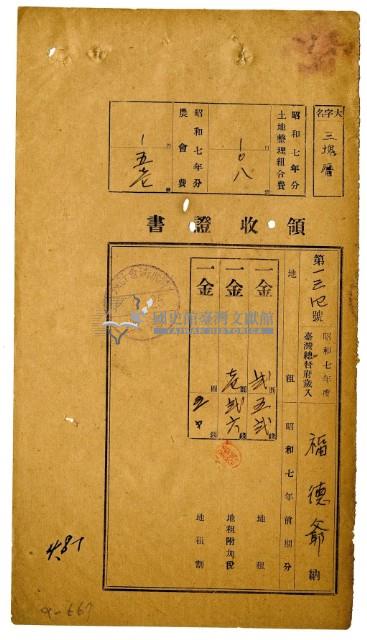 大字名
三塊厝
昭和七年分
土地整理組合費
一〇八
昭和七年分
農會費
一五
領收證書
第一三四號
昭和七年度
臺灣總督府歲入
福德爺 納
地租
昭和七年前期分
一金 貳五貳 錢 地租
一金 圓 壹貳六 錢 地租附加稅
一金 圓 錢 地租割
國史館臺灣文獻館
TAIWAN HISTORICA